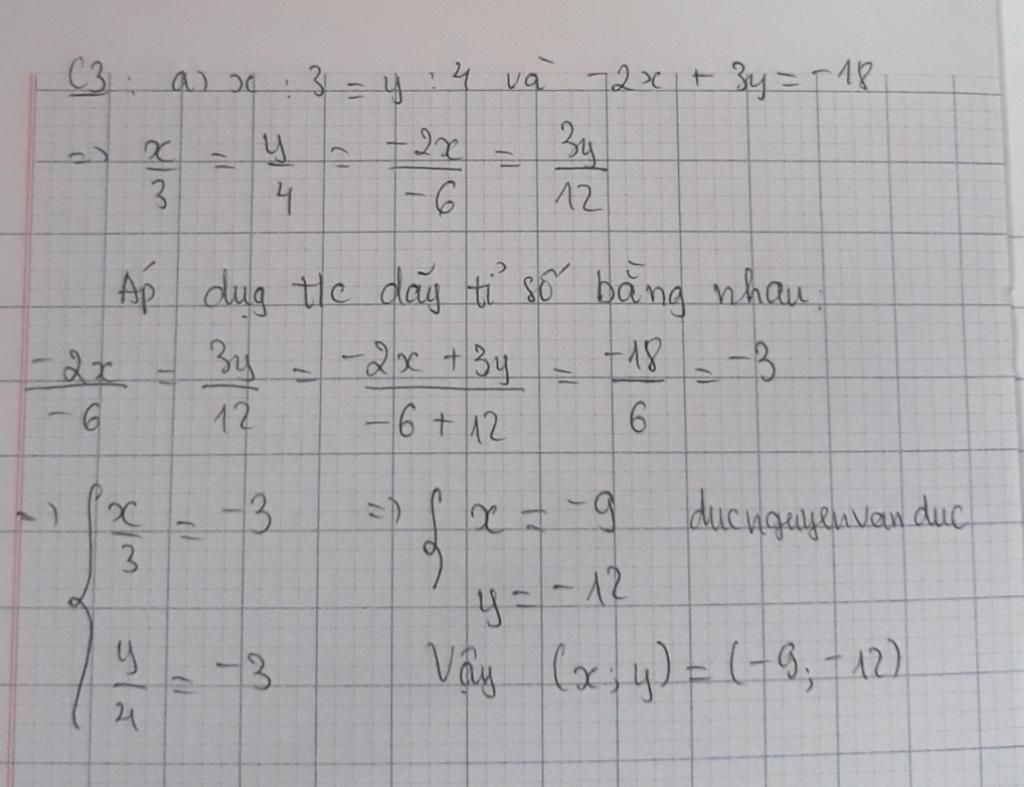 C3: a) x : 3 = y : 4 và -2x + 3y = -18
=> x/3 = y/4 = -2x/-6 = 3y/12
Áp dụg t/c dãy tỉ số bằng nhau
-2x/-6 = 3y/12 = -2x + 3y/-6 + 12 = -18/6 = -3
=> { x/3 = -3 => { x = -9 ducnguyenvanduc
y = -12
y/4 = -3 Vậy (x; y) = (-9; -12)